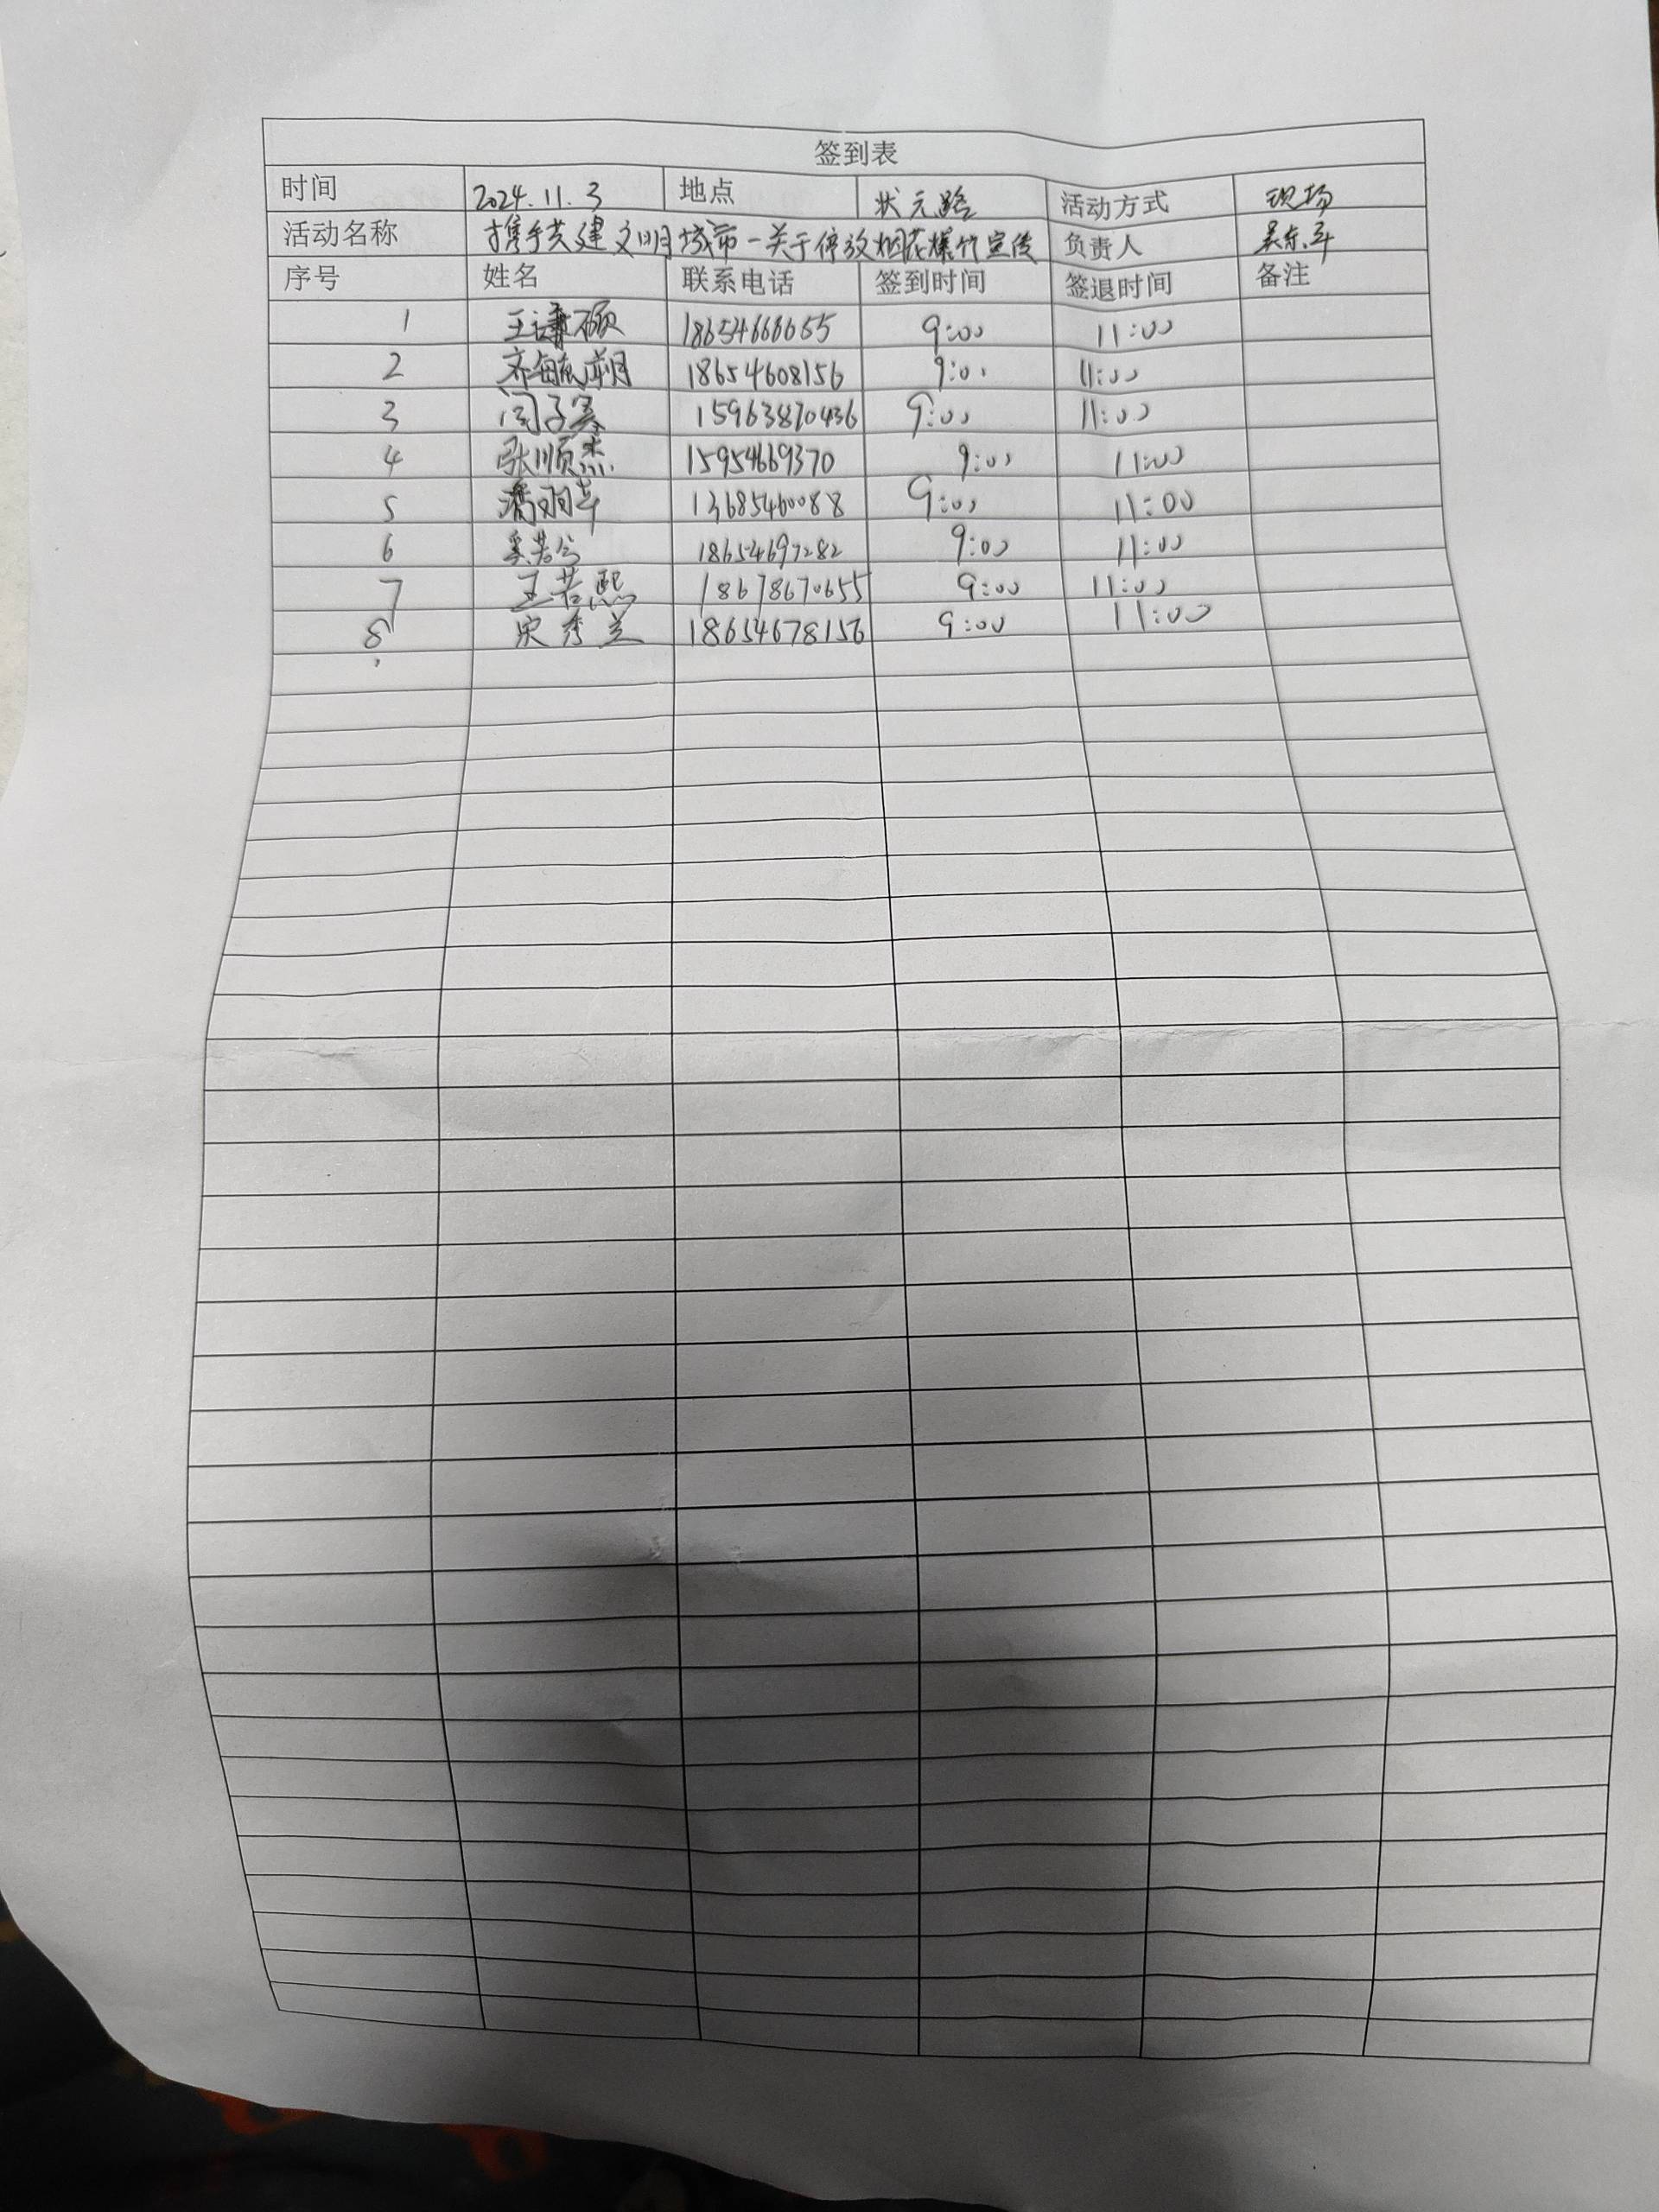 签到表
时间 2024.11.3 地点 状元路 活动方式 现场
活动名称 携手共建文明城市-关于停放烟花爆竹宣传 负责人
序号 姓名 联系电话 签到时间 签退时间 备注
1 王 硕 18654666655 9:00 11:00
2 齐毓 18654608156 9:00 11:00
3 闫子骞 15963870436 9:00 11:00
4 张顺杰 15954669370 9:00 11:00
5 潘 13685460088 9:00 11:00
6 奚若兮 18654697282 9:00 11:00
7 王若熙 18678670655 9:00 11:00
8 宋秀兰 18654678156 9:00 11:00